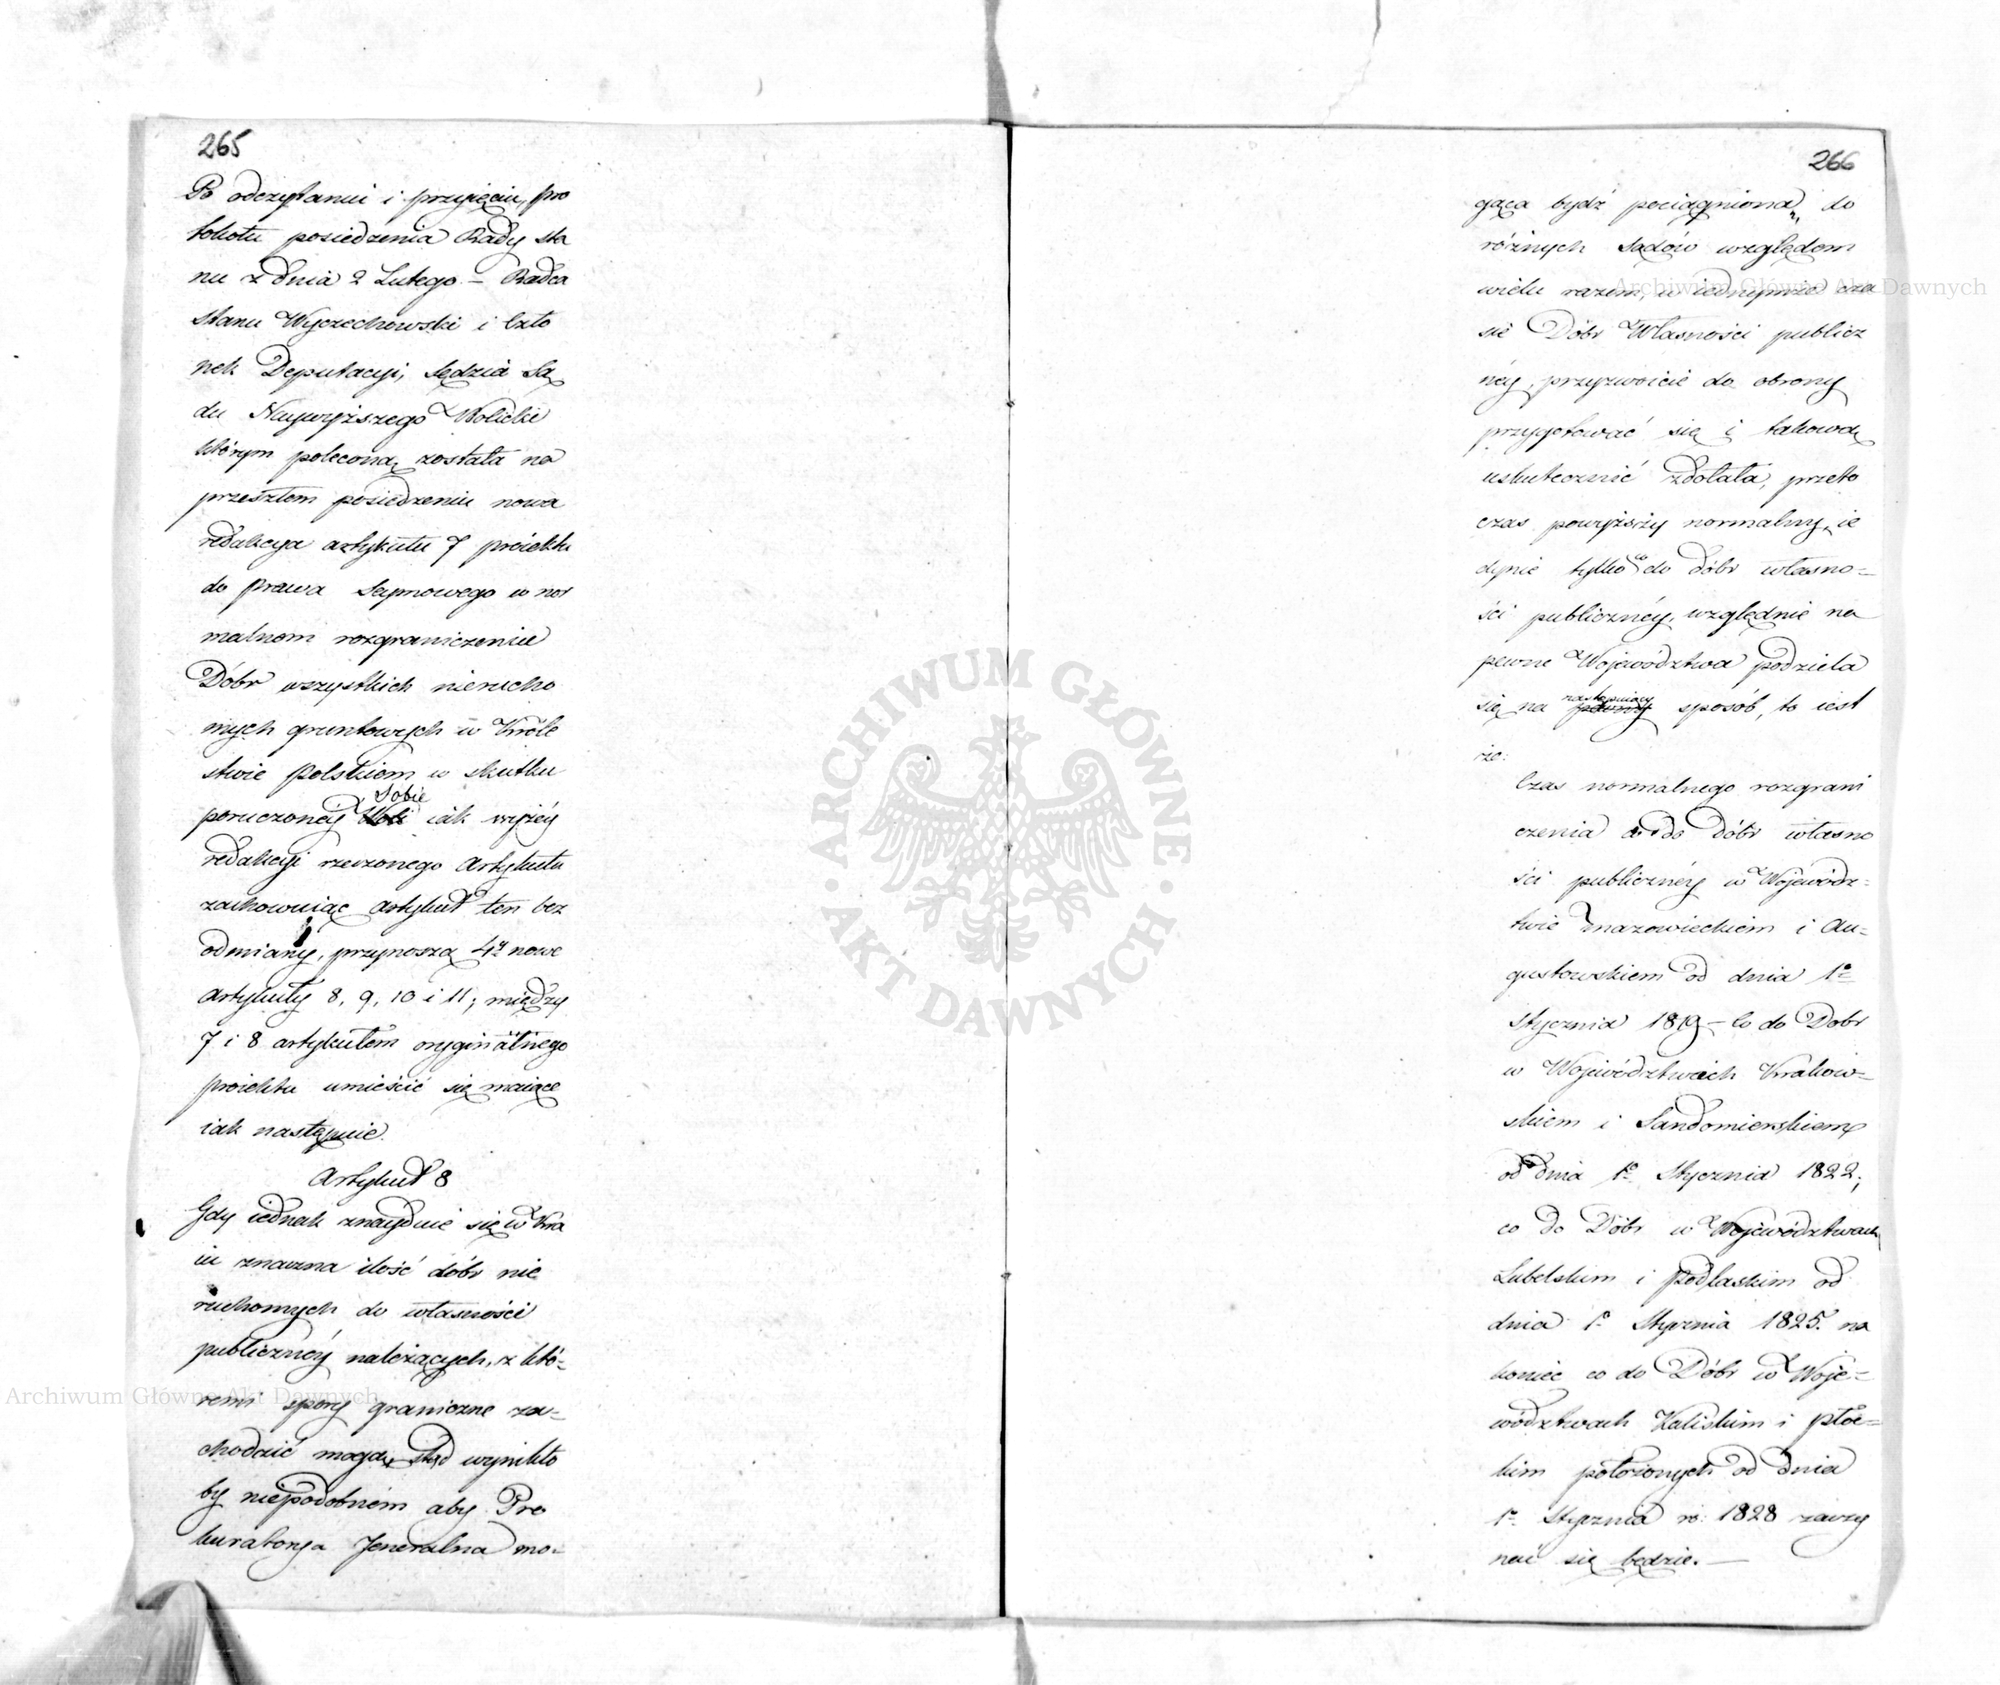 265
Po odczytaniu i przyięciu, pro
tokołu posiedzenia Rady Sta
nu z dnia 2 Lutego – Radca
Stanu Wyczechowski i Czło
nek Deputacyi, Sędzia Są
du Naywyższego Wolicki
którym poleconą została na
przeszłem posiedzeniu nowa
redakcya artykułu 7 proiektu
do prawa Seymowego w nor
malnem rozgraniczeniu
Dóbr wszystkich nierucho
mych gruntowych w Króle
stwie Polskiem w skutku
poruczoney Sobie iak wyżéy
redakcyi rzeczonego Artykułu
zachowuiąc artykuł ten bez
odmiany, przynoszą 4ry nowe
Artykuły 8, 9, 10 i 11; między
7 i 8 artykułem oryginalnego
proiektu umieścić się maiące
iak następuie.
Artykuł 8
Gdy iednak znayduie się w Kra
iu znaczna ilość dóbr nie
ruchomych do własności
publicznéy należących, z któ=
remi spory graniczne za=
chodzić mogą, stąd wynikło
by niepodobném aby Pro
kuratorya Jeneralna mo=
266
gąca bydź pociągnioną, do
różnych Sądów względem
wielu razem, w iednymże cza
sie Dóbr Własności publicz
néy, przyzwoicie do obrony
przygotować się i takową
uskutecznić zdołała, przeto
czas powyższy normalny, ie
dynie tylko co do dóbr własno=
ści publicznéy, względnie na
pewne Województwa podziela
się na następuiący sposób, to iest
że:
Czas normalnego rozgrani
czenia co do dóbr własno
ści publicznéy w Wojewódz=
twie Mazowieckiem i Au=
gustowskiem od dnia 1o
Stycznia 1819 – Co do Dobr
w Województwach Krakow=
skiem i Sandomierskiem
od dnia 1o Stycznia 1822;
co do Dóbr w Województwach
Lubelskim i Podlaskim od
dnia 1o Stycznia 1825. na
koniec co do Dóbr w Woje=
wództwach Kaliskim i Płoc=
kim położonych od dnia
1o Stycznia ro: 1828 zaczy
nać się będzie. —
ARCHIWUM GŁÓWNE
AKT DAWNYCH
Archiwum Główne Akt Dawnych
Archiwum Główne Akt Dawnych